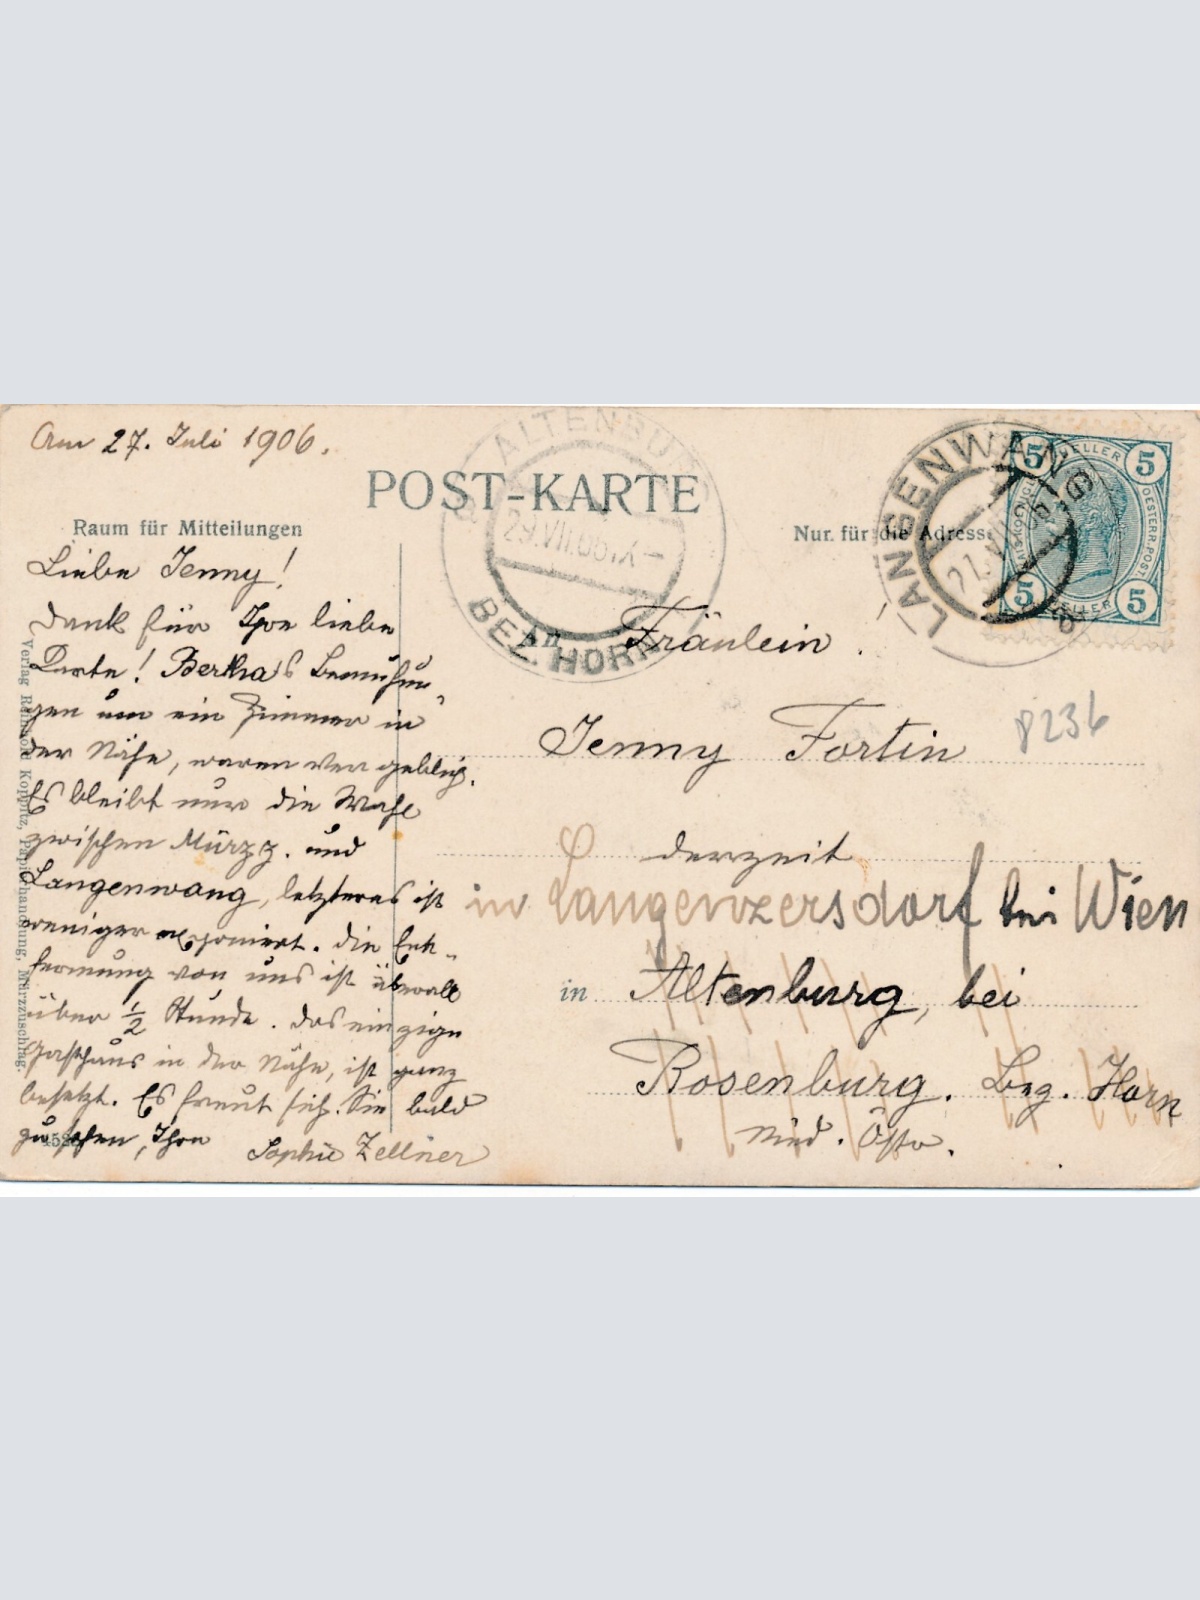 Am 27. Juli 1906.
POST-KARTE
Raum für Mitteilungen
Nur für die Adresse
Liebe Jenny!
Dank für Ihre liebe
Karte! Berthas Bemühun-
gen um ein Zimmer in
der Nähe, waren vergeblich.
Es bleibt nur die Wahl
zwischen Mürzz. und
Langenwang, letzteres ist
weniger exponiert. Die Ent-
fernung von uns ist überall
über 1/2 Stunde. Das einzige
Gasthaus in der Nähe, ist ganz
besetzt. Es freut sich Sie bald
zu sehen, Ihre
Sophie Zellner
Verlag Reinhold Koppitz, Papierhandlung, Mürzzuschlag.
ALTENBURG
29.VII.06
BEZ. HORN
LANGENWANG
27.VII.06
5 5
HELLER
KAIS. KOENIGL.
OESTERR. POST.
HELLER
5 5
An Fräulein
Jenny Fortin
8236
derzeit
in Langenzersdorf bei Wien
in Altenburg, bei
Rosenburg. Bez. Horn
Nied. Östr.